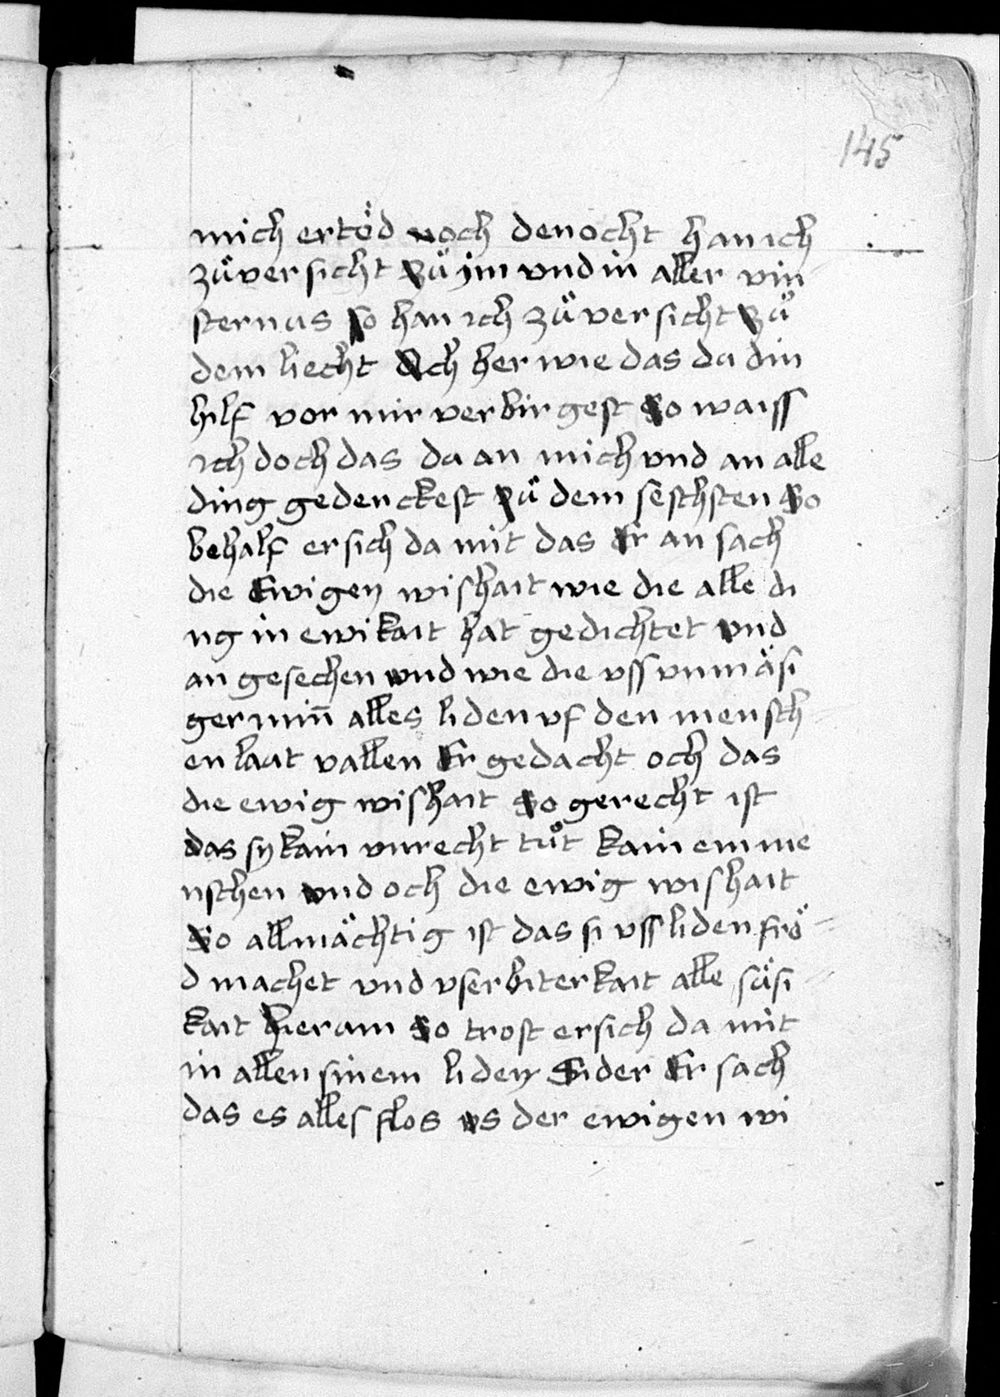 145
mich ertöd noch denocht han ich
zůversicht zů jm vnd in aller vin
sternus so han ich zůversicht zů
dem liecht Ach her wie das du din
hilf vor mir verbirgest So waiss
ich doch das du an mich vnd an alle
ding gedenckest zů dem sechsten So
behalf er sich da mit das Er an sach
die Ewigen wishait wie die alle di
ng in ewikait hat gedichtet vnd
an gesechen vnd wie die vss vnmäsi
ger min̄ alles liden vf den mensch
en laat vallen Er gedacht och das
die ewig wishait So gerecht ist
das sy kain vnrecht tůt kainem me
nschen vnd och die ewig wishait
So allmächtig ist das si vss liden frö
d machet vnd vser biterkait alle sůsi
kait hieram So trost er sich da mit
in allen sinem liden Sider Er sach
das es alles flos vs der ewigen wi